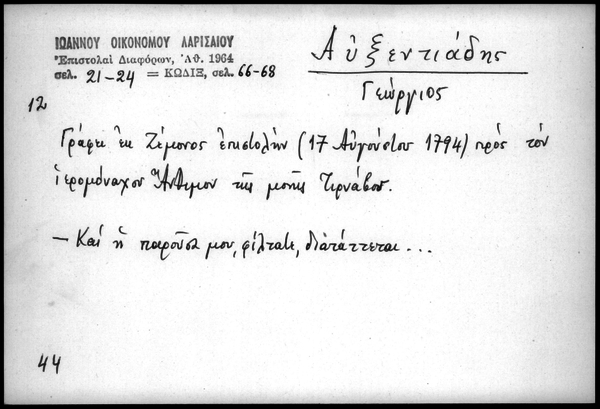 ΙΩΑΝΝΟΥ ΟΙΚΟΝΟΜΟΥ ΛΑΡΙΣΑΙΟΥ
Ἐπιστολαὶ Διαφόρων, Ἀθ. 1964
σελ. 21-24 = ΚΩΔΙΞ, σελ. 66-68
Αὐξεντιάδης
Γεώργιος
12
Γράφει ἐκ Ζέμονος ἐπιστολὴν (17 Αὐγούστου 1794) πρὸς τὸν
ἱερομόναχον Ἄνθιμον τῆς μονῆς Τιρνάβου.
– Καὶ ἡ παροῦσά μου, φίλτατε, διατάττεται...
44